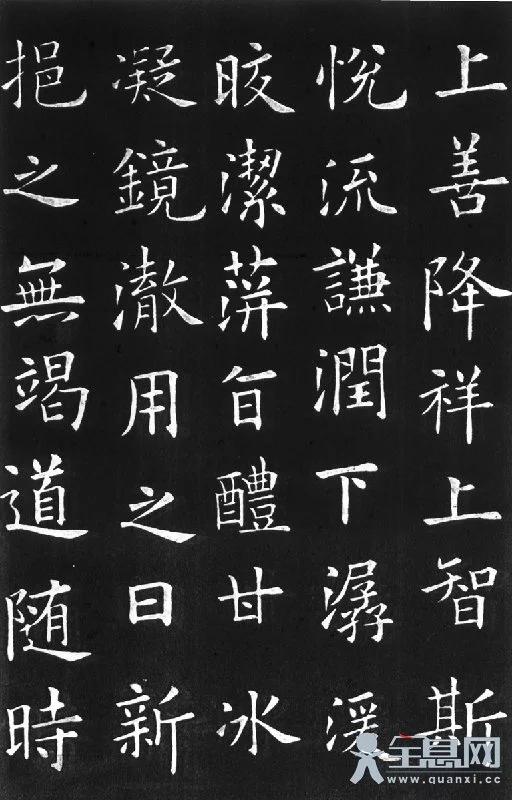 上善降祥上智斯
悅流謙潤下潺湲
皎潔蓱旨醴甘冰
凝鏡澈用之日新
挹之無竭道隨時
全息网
www.quanxi.cc